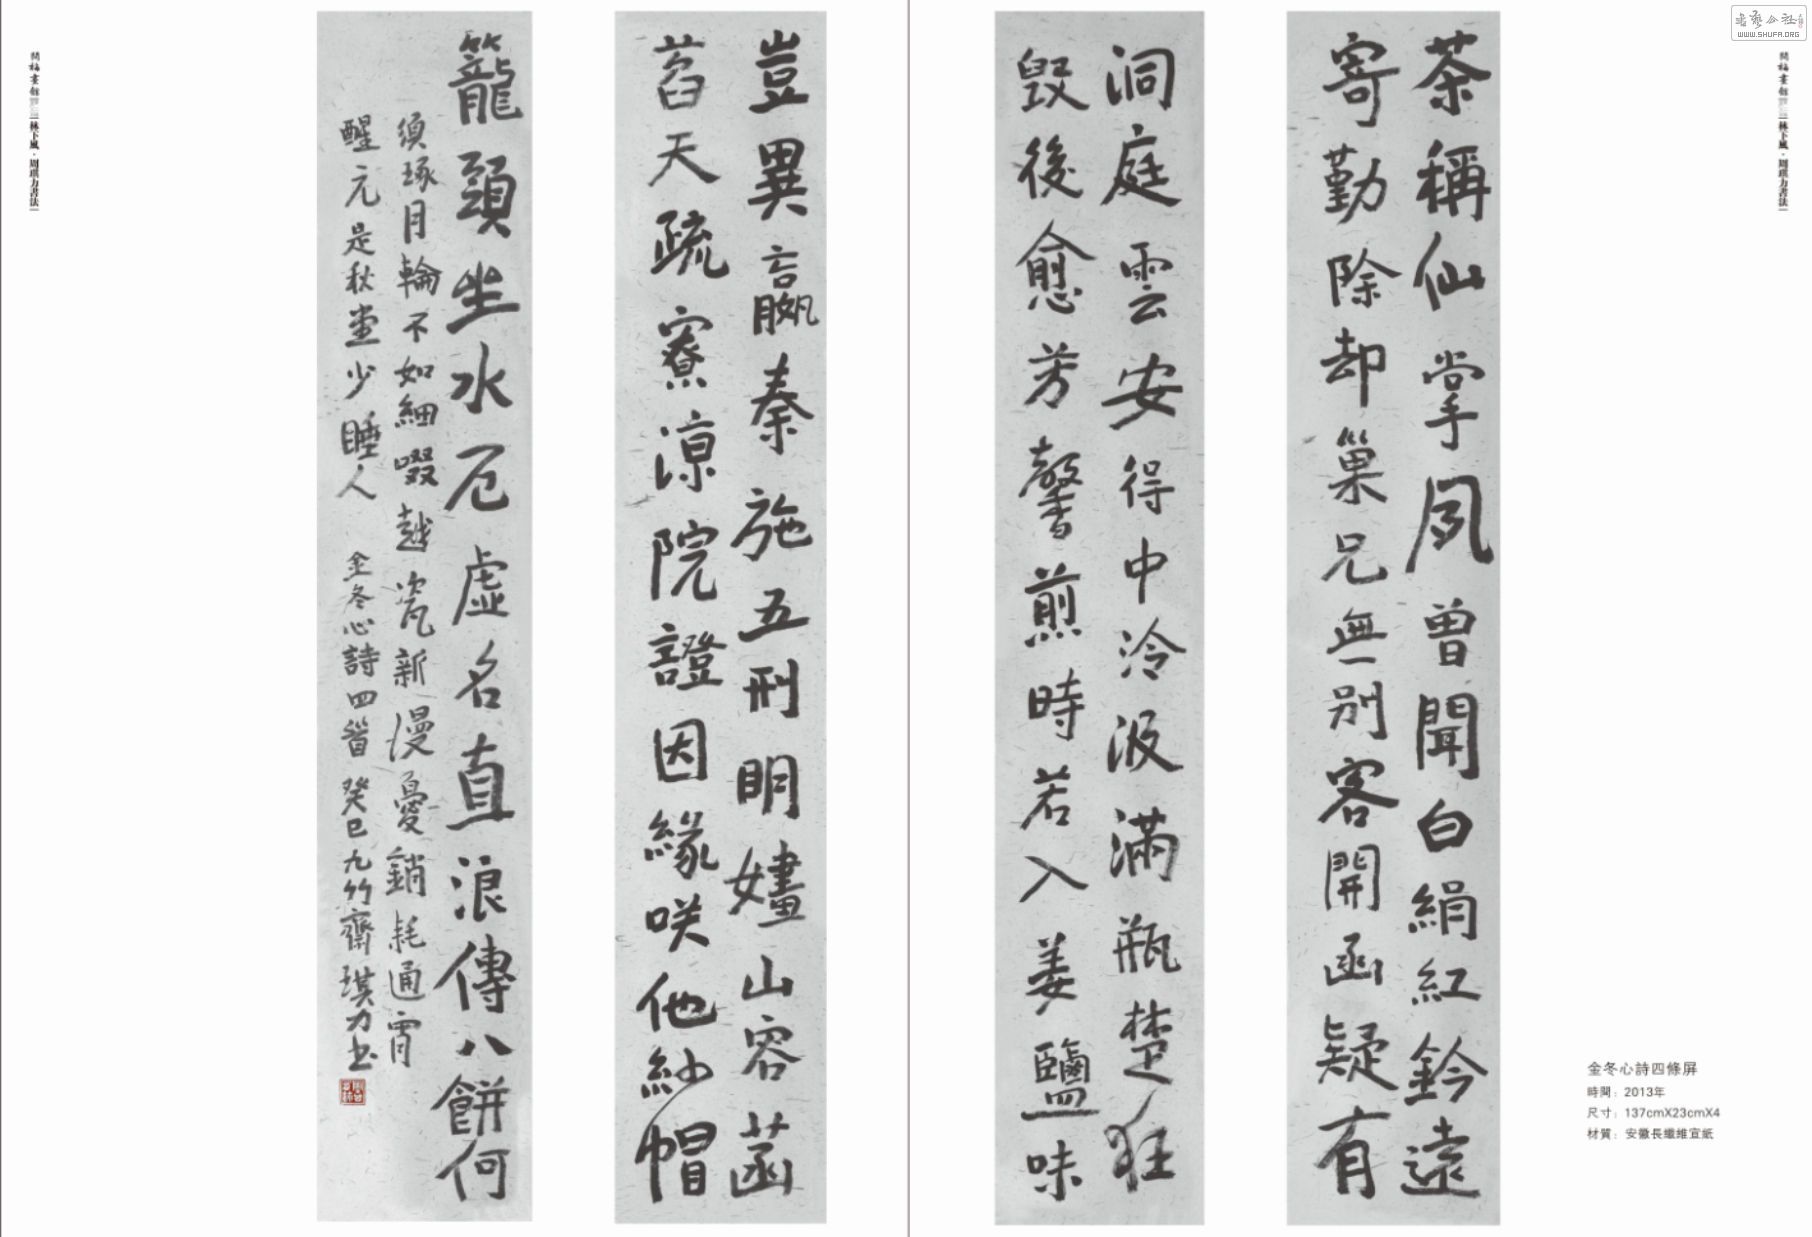 茶稱仙掌夙曾聞白絹紅鈐遠
寄勤除却巢兄無別客開函疑有
洞庭雲安得中泠汲滿瓶楚狂
毀後愈芳馨煎時若入姜鹽味
豈異嬴秦施五刑明嫿山容菡
萏天疏寮涼院證因緣咲他紗帽
籠頭坐水厄虛名直浪傳八餅何
須琢月輪不如細啜越瓷新漫憂銷耗通宵
醒元是秋堂少睡人 金冬心詩四首 癸巳九竹齋琪力書
金冬心詩四條屏
時間：2013年
尺寸：137cmX23cmX4
材質：安徽長纖維宣紙
林下風·周琪力書法
林下風·周琪力書法
書藝公社
WWW.SHUFA.ORG